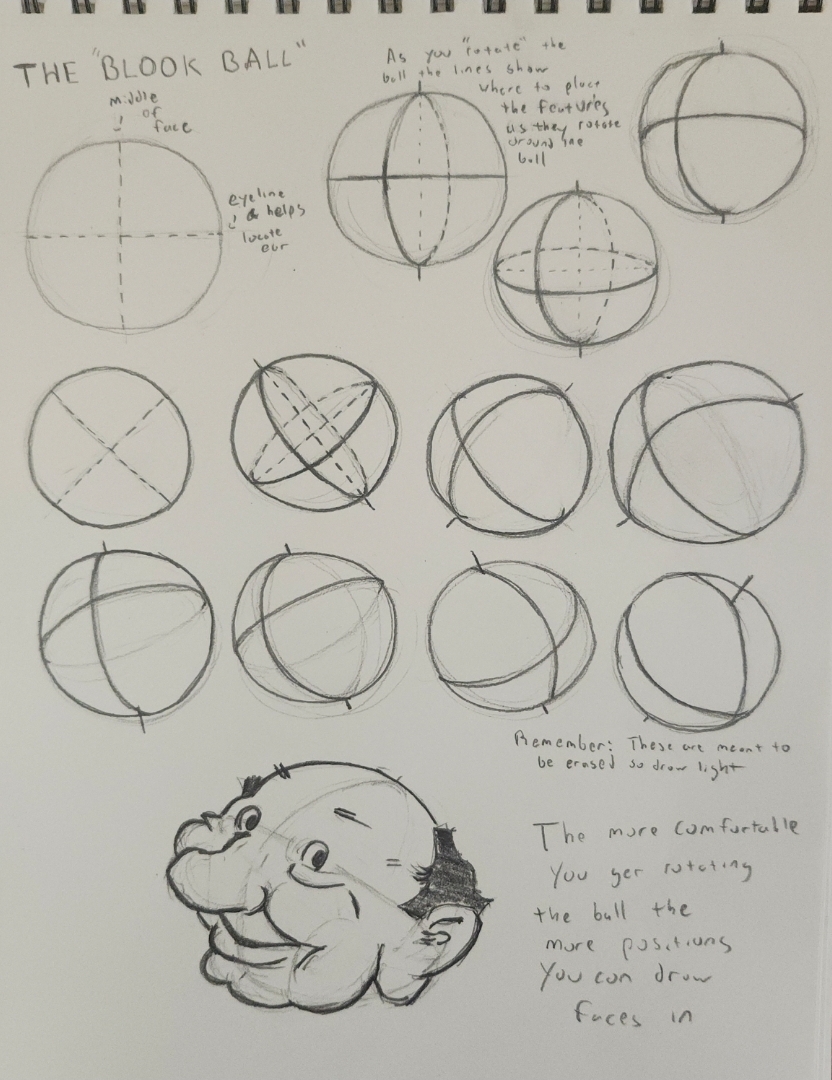 THE "BLOOK BALL"
middle
of
face
eyeline
& helps
locate
ear
As you "rotate" the
ball the lines show
where to place
the features
as they rotate
around the
ball
Remember: These are meant to
be erased so draw light
The more comfortable
you ger rotating
the ball the
more positions
you can draw
faces in